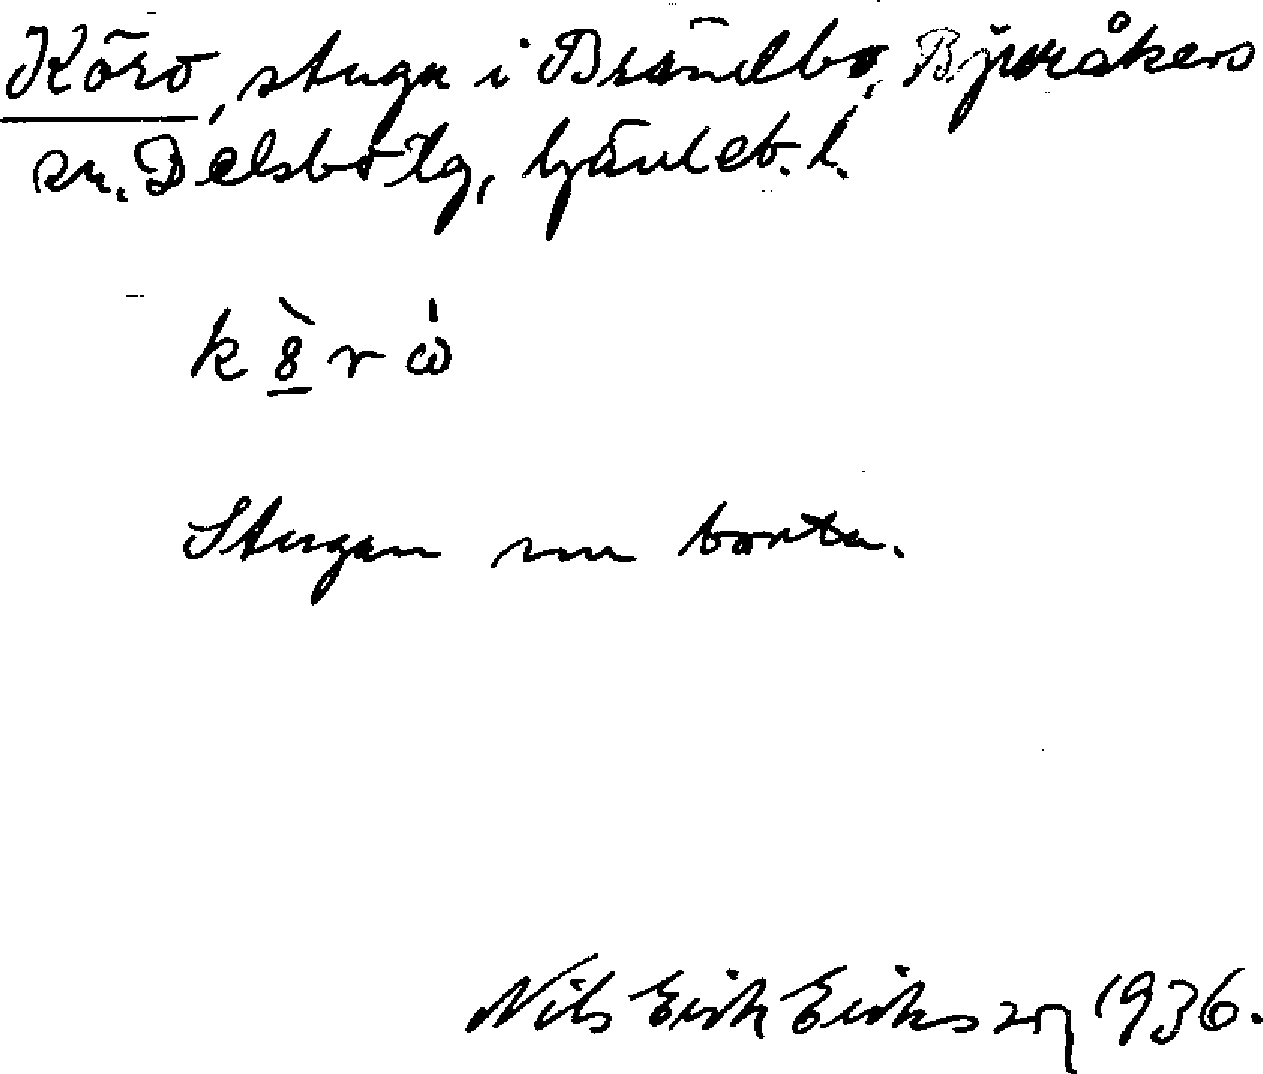 Körö, stuga i Brändbo, Bjuråkers
sn. Delsbo tg, Gävleb. l.
Stugan nu borta.
Nils Erik Eriksson 1936.